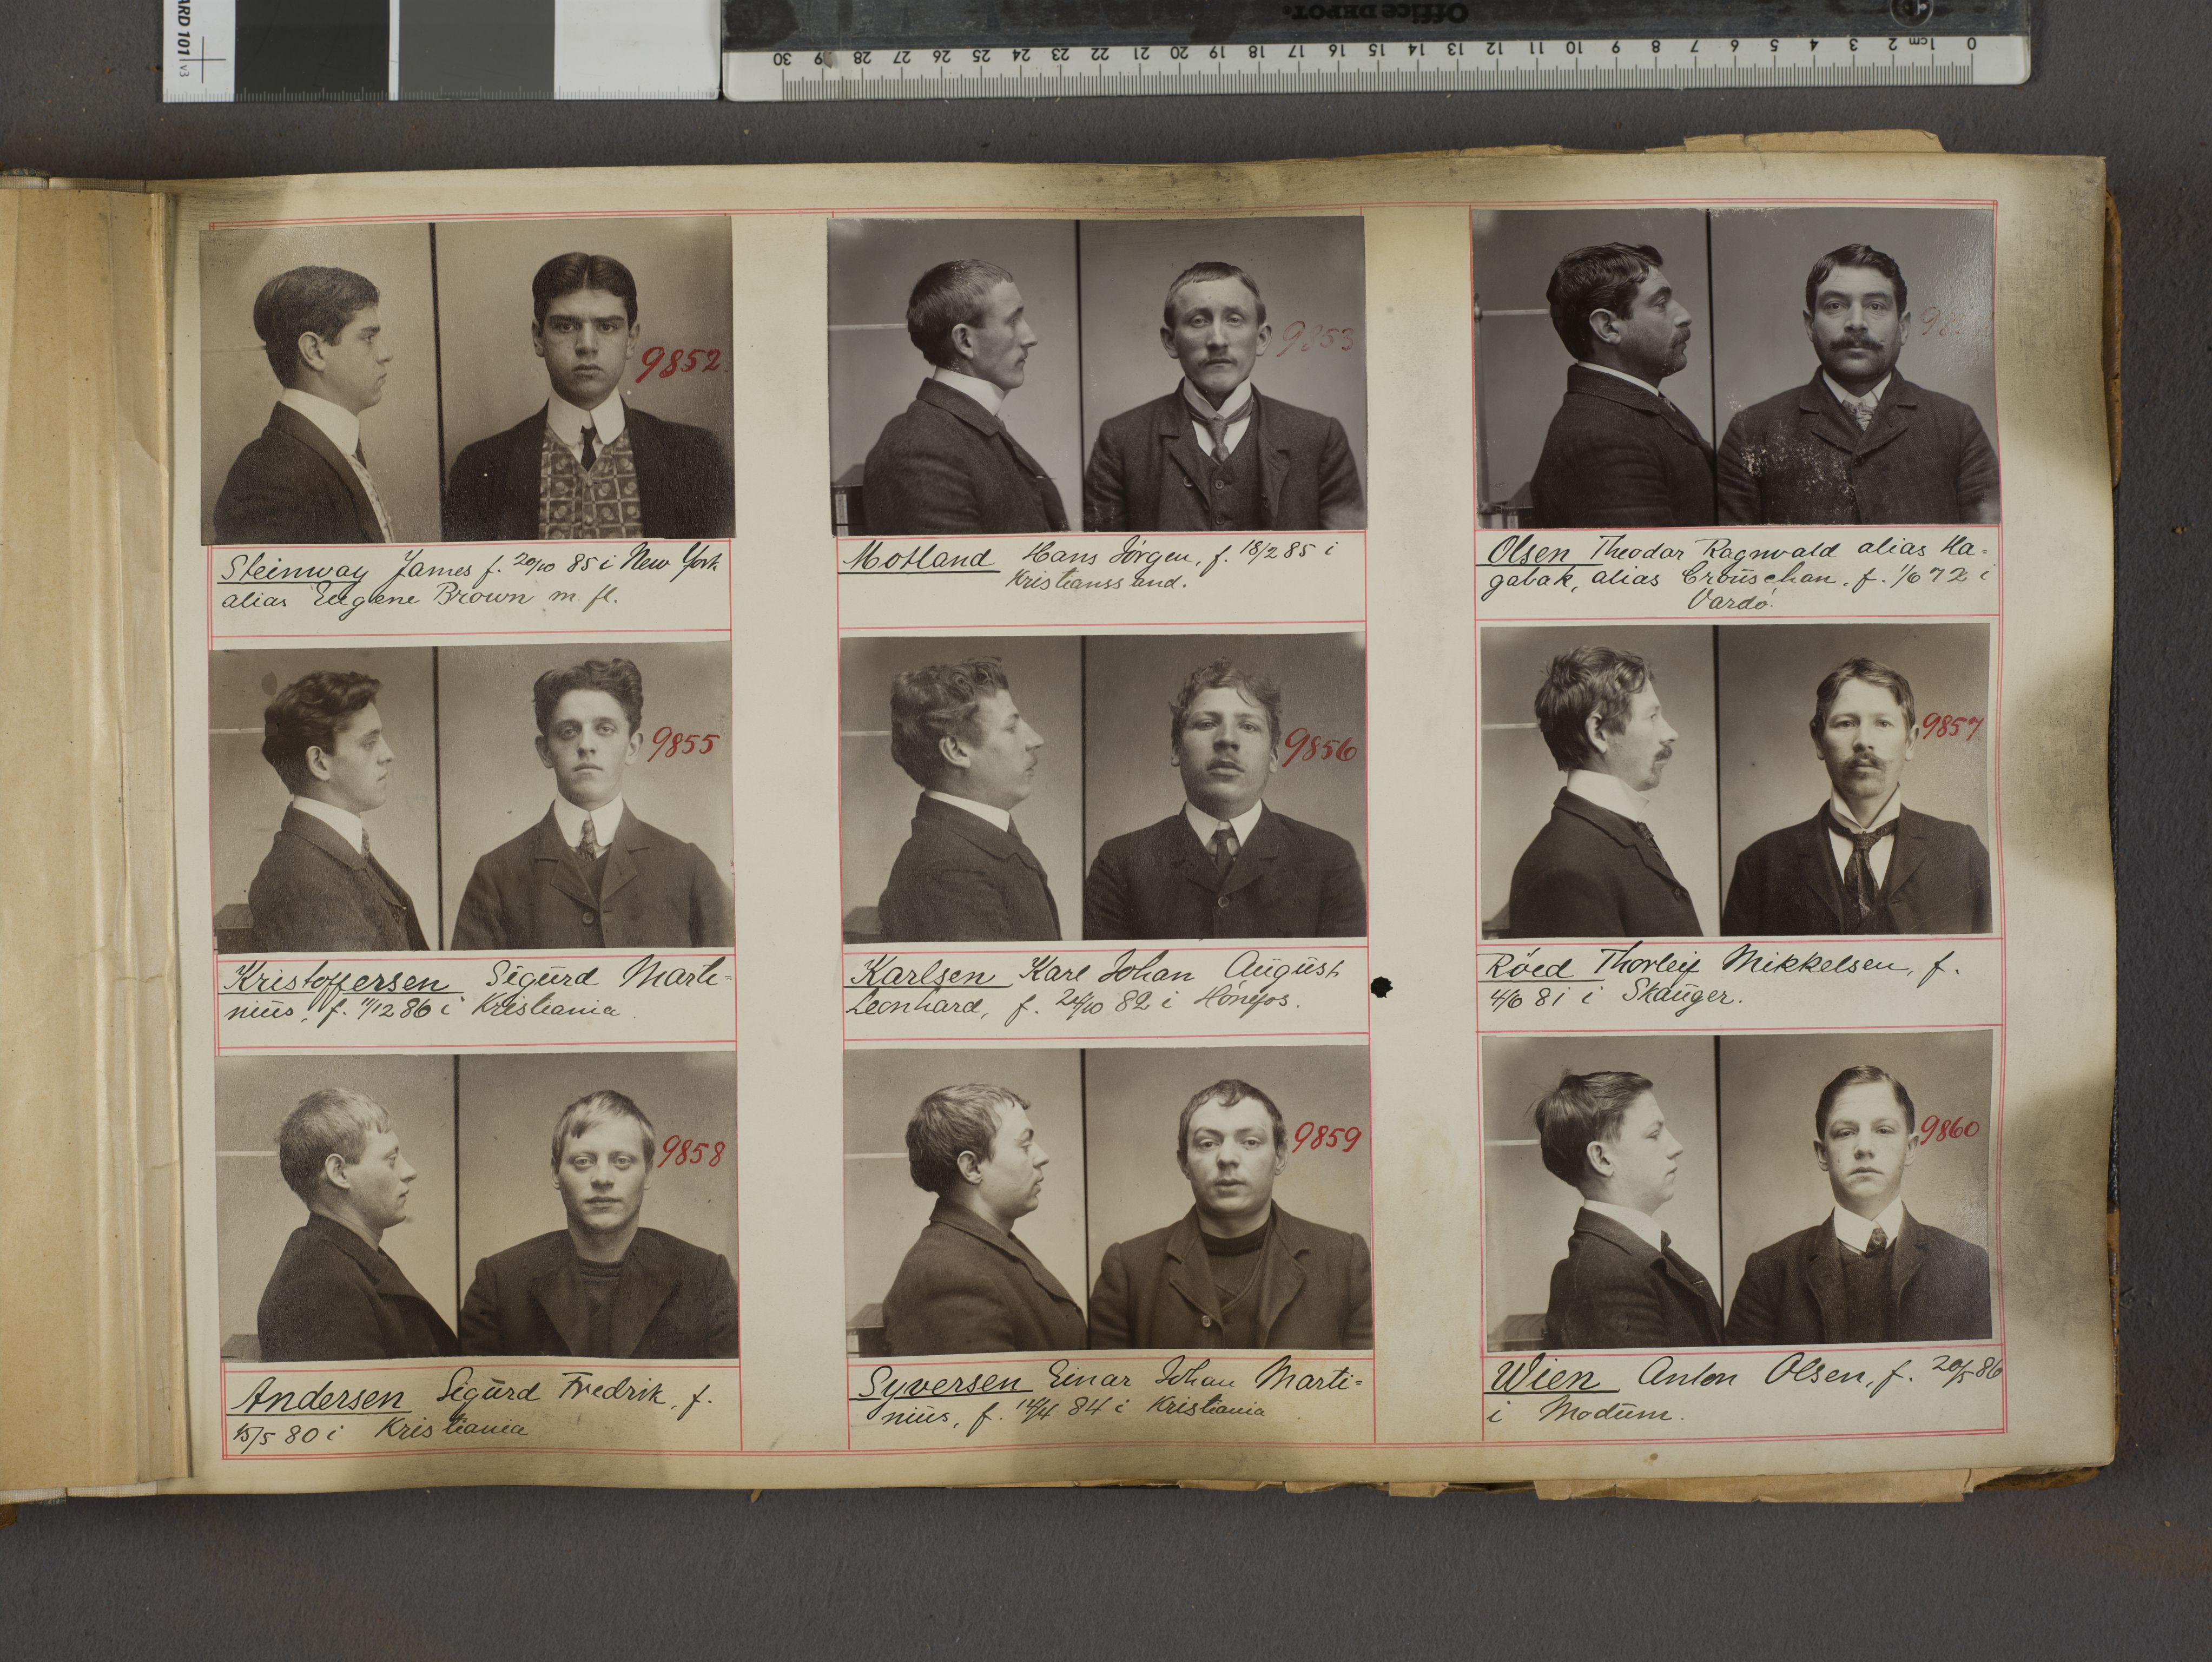 ARD 101 v3
Office DEPOT
0 1cm 2 3 4 5 6 7 8 9 10 11 12 13 14 15 16 17 18 19 20 21 22 23 24 25 26 27 28 29 30
9852
Steinway James f. 20/10 85 i New York
alias Eugene Brown m. fl.
9853
Motland Hans Jörgen, f. 18/2 85 i
Kristianssand.
Olsen Theodor Ragnvald alias Ha-
gabak, alias Croüschan, f. 1/6 72 i
Vardö.
9855
Kristoffersen Sigürd Marti=
niüs, f. 1/12 86 i Kristiania.
9856
Karlsen Karl Johan Aügüst
Leonhard, f. 24/10 82 i Hönefos.
9857
Röed Thorleif Mikkelsen, f.
4/6 81 i Skaüger.
9858
Andersen Sigürd Fredrik, f.
15/5 80 i Kristiania
9859
Syversen Einar Johan Marti=
niüs, f. 14/4 84 i Kristiania
9860
Wien Anton Olsen, f. 20/5 86
i Modüm.